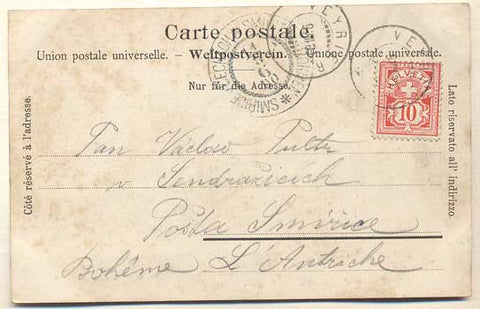 Carte postale.
Union postale universelle. – Weltpostverein. – Unione postale universale.
Nur für die Adresse.
Côté réservé à l'adresse.
Lato riservato all' indirizzo.
HELVETIA
10
SMIŘICE
VEY
Pan Václav Pultr
v Sendražicích
Pošta Smiřice
Bohême L'Autriche